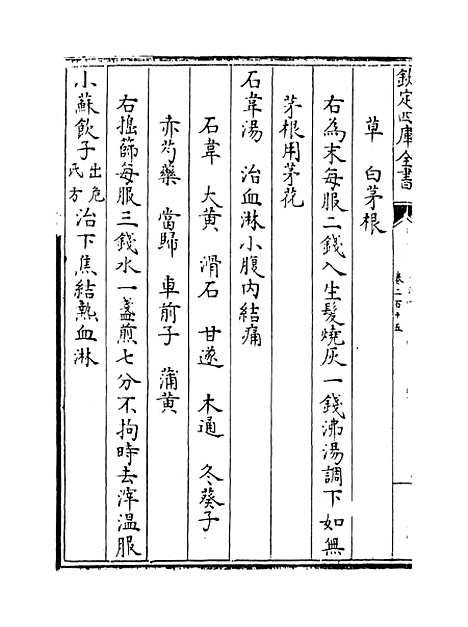 欽定四庫全書
卷二百十五
草　白茅根
右為末每服二錢入生髮燒灰一錢沸湯調下如無
茅根用茅花
石韋湯　治血淋小腹内結痛
石韋　大黄　滑石　甘遂　木通　冬葵子
赤芍藥　當歸　車前子　蒲黄
右搗篩每服三錢水一盞煎七分不拘時去滓温服
小蘇飲子出危氏方治下焦結熱血淋